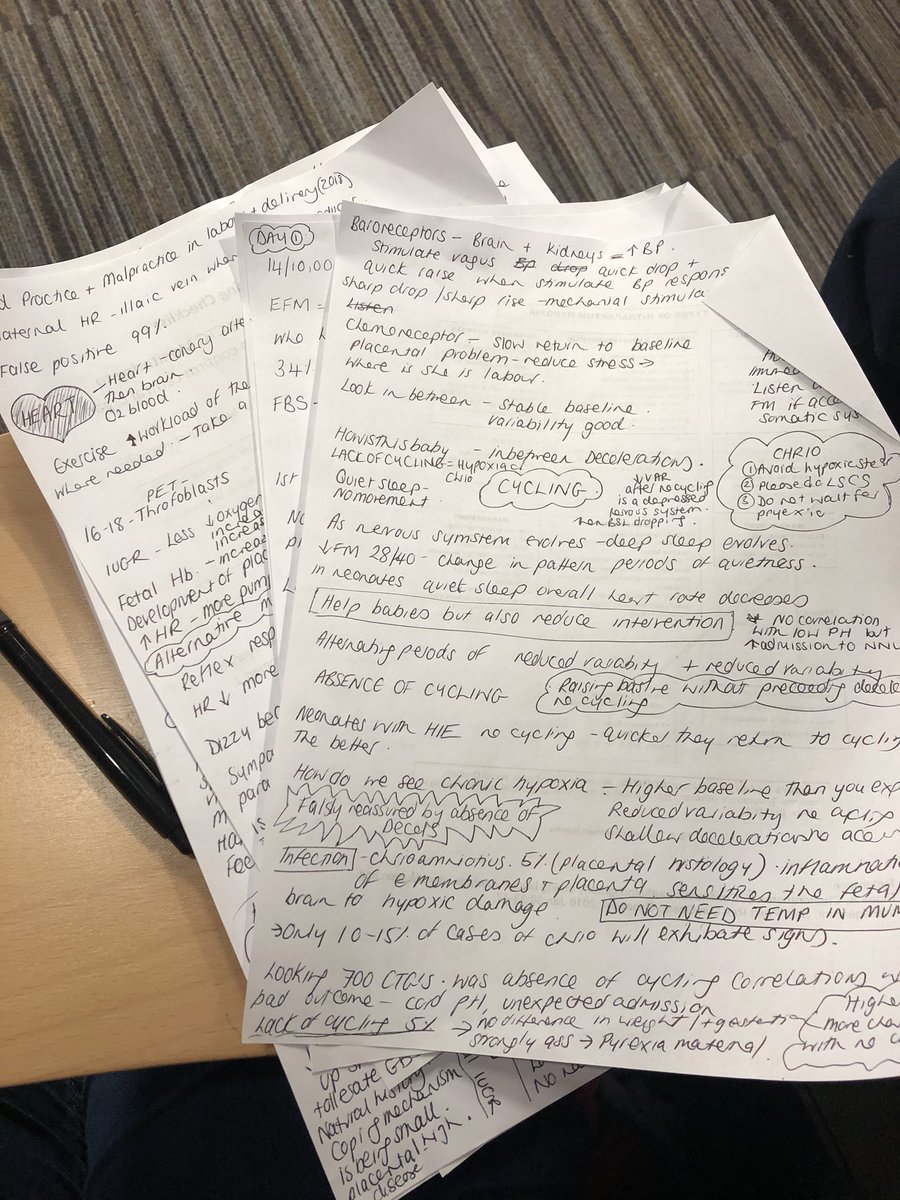 Baroreceptors - Brain + kidneys = ↑ BP.
Stimulate vagus Bp drop quick drop +
quick raise when stimulate BP respons
sharp drop / sharp rise - mechnial stimula
Listen
Chemoreceptor - slow return to baseline
placental problem - reduce stress →
where is she is labour.
Look in between - stable baseline.
variability good.
Immed
Listen
FM if acc
somatic sys
How is this baby - inbetween Decelerations.
LACK OF CYCLING = HYPOXIA
CHIO
Quiet sleep -
No movement.
CYCLING
↓ VAR
after no cycling
is a depressed
nervous system.
dropping.
CHRIO
① Avoid hypoxic stess
② Please do LSCS
③ Do not wait for
pryexic
As nervous symstem evolves - deep sleep evolves.
↓ FM 28/40 - change in pattern periods of quietness.
in neonates quiet sleep overall heart rate decreases
Help babies but also reduce intervention
* No correlation
with low PH but
↑ admission to NNU
Alternating periods of reduced variabity + reduced variability
ABSENCE OF CYCLING
Raising basline without preceeding decele
no cycling
Neonates with HIE no cycling - quicker they return to cycling
the better.
How do we see chronic hypoxia - Higher baseline than you exp
Reduced variability no cycling
shallow decelerations no acce
Falsy reassured by absence of
Decels
Infection - chrioamniotius. 5% (placental histology). inflammatio
of e membranes + placenta sensitizes the fetal
brain to hypoxic damage.
DO NOT NEED TEMP IN MUM
→ Only 10-15% of cases of chrio will exhibate signs.
Looking 700 CTG's. was absence of cycling correlation w
bad outcome - cord PH, unexpected admission
Lack of cycling 5% → no difference in weight / + gestation
strongly ass → Pyrexia maternal.
Higher
more cha
with no c
DAY ①
14/10,00
EFM =
who
34%
FBS -
1st
Practice + Malpractice in labour + delivery (2018)
aternal HR - illaic vein whe
False positive 99%.
HEART
- Heart - conary arte
then brain.
O2 blood.
Exercise ↑ workload of the
where needed. - Take a
PET -
16-18 - Throfoblasts
IUGR - Less ↓ oxygen
increa
increas
Fetal Hb. - increas
Development of plac
↑ HR - more pump
Alternative m
Reflex resp
HR ↓ more
Dizzy bec
Sympa
para
Feel
up
tollesate
Natural history
Coping mechanism
is being small.
placental high.
disease
IUGR
No